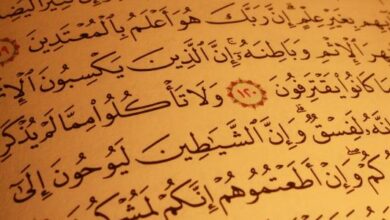 بِغَيْرِ عِلْمٍ إِنَّ رَبَّكَ هُوَ أَعْلَمُ بِالْمُعْتَدِينَ
الْإِثْمِ وَبَاطِنَهُ إِنَّ الَّذِينَ يَكْسِبُونَ
كَانُوا۟ يَقْتَرِفُونَ ١٢٠ وَلَا تَأْكُلُوا۟ مِمَّا لَمْ يُذْكَرِ
لَفِسْقٌ وَإِنَّ الشَّيَٰطِينَ لَيُوحُونَ إِلَىٰ
وَإِنْ أَطَعْتُمُوهُمْ إِنَّكُمْ